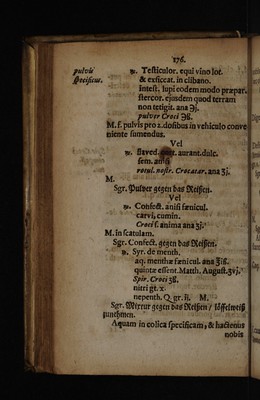 176.
pulvis specificus.
℞. Testiculor. equi vino lot.
& exsiccat. in clibano.
Intest. lupi eodem modo præpar.
stercor. ejusdem quod terram
non tetigit. ana ℈j.
pulver Croci ℈ß.
M. f. pulvis pro 2. dosibus in vehiculo conve
niente sumendus.
Vel
℞. Elæod. aurant. dulc.
sem. anisi
rotul. nostr. Crocatar. ana ʒj.
M.
Sgr. Pulver gegen das Reissen.
Vel
℞. Confect. anisi fœnicul.
carvi, cumin.
Croci s. anima ana ʒj.
M. in scatulam.
Sgr. Confect. gegen das Reissen.
℞. Syr. de menth.
aq. menthæ fœnicul. ana ℥iß.
quintæ essent. Matth. August. ʒvj.
Spir. Croci ʒß.
nitri gt. x
nepenth. Q. gr. ij. M.
Sgr. Mixtur gegen das Reissen / löffelweiß
zunehmen.
Aquam in colica specificam, & hactenus
nobis